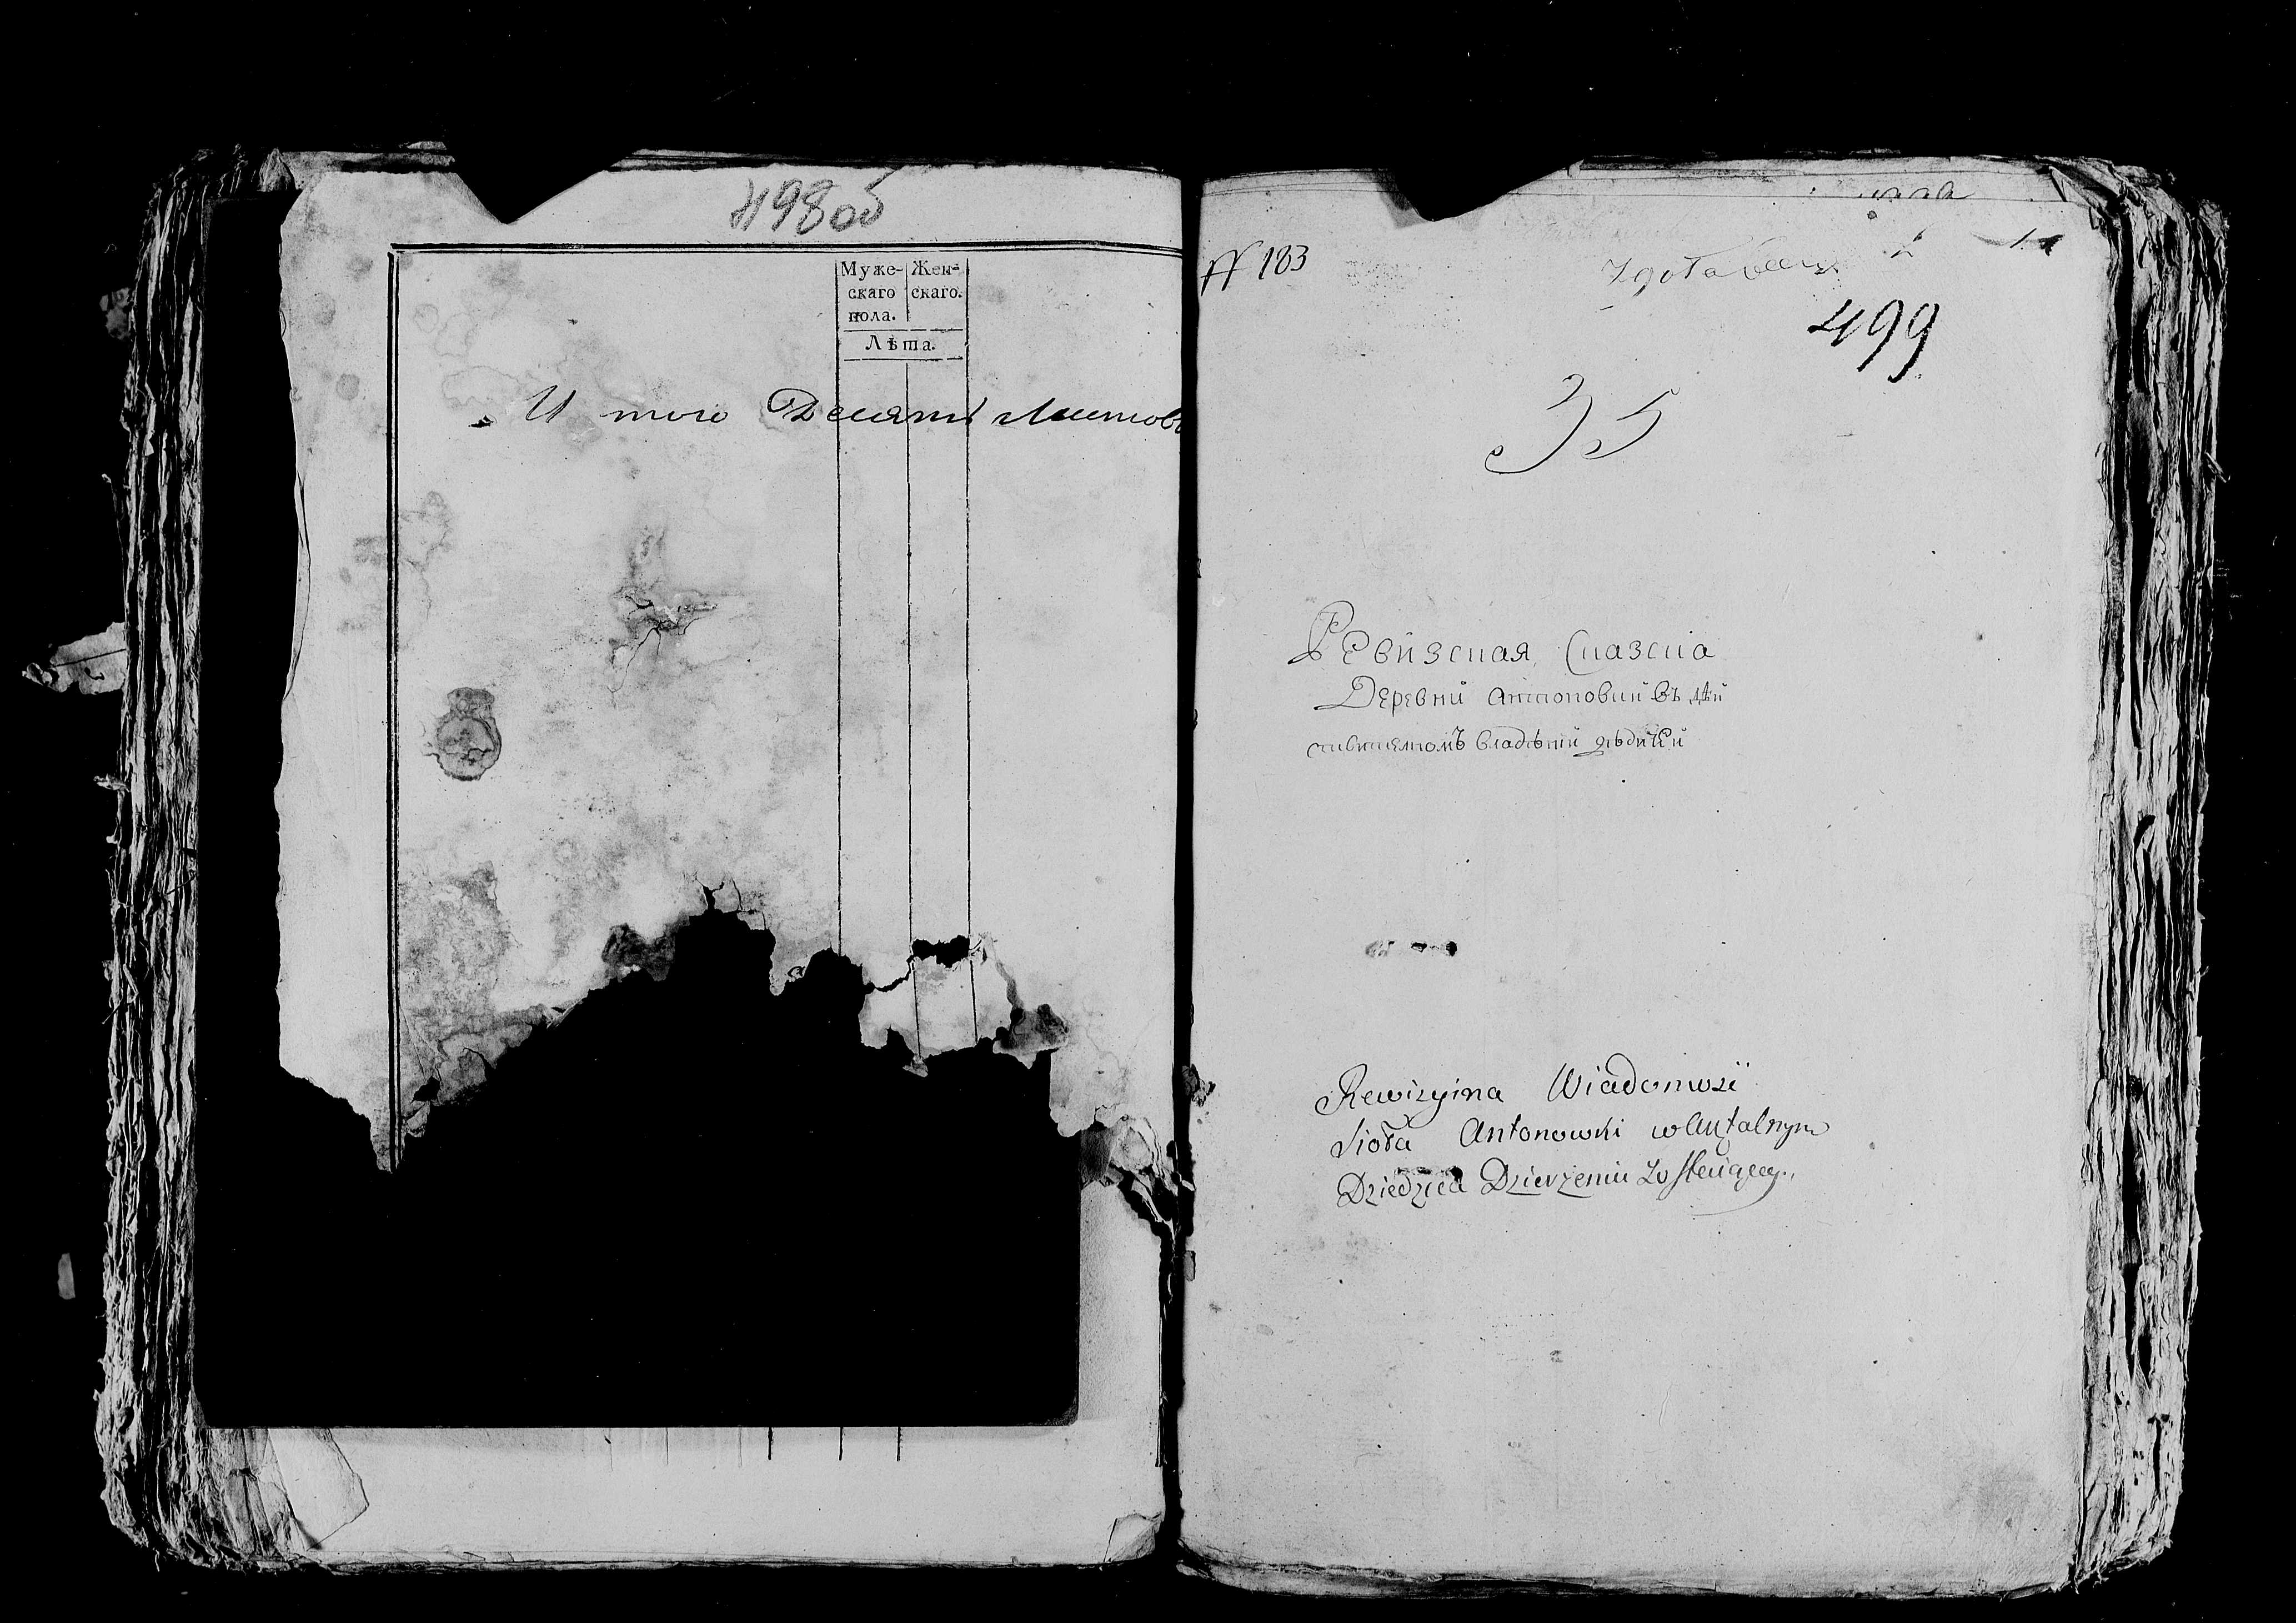 498об
Муже- Жен-
скаго скаго.
пола.
Лѣта.
И того Десять Листовъ
№ 183
499
35
Ревизская Сказка
Деревни Антоновки въ дѣй
ствителномъ владѣнии
Rewizyina Wiadomość
Sioła Antonowki w Aktalnym
Dziedzica Dzierżeniu Zostaiącey.,